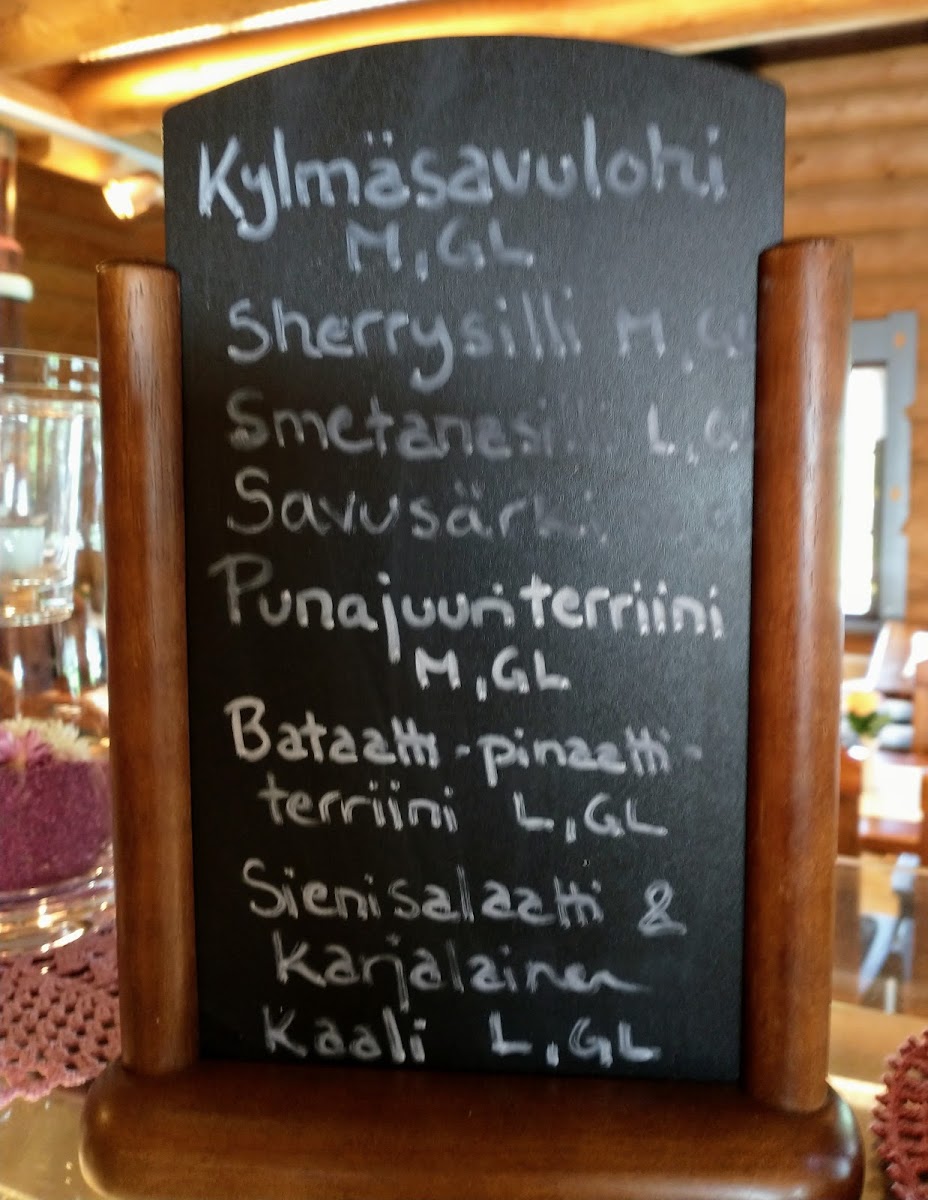 Kylmäsavulohi
M, GL
Sherrysilli M, GL
Smetanasilli L, GL
Savusärki
Punajuuriterriini
M, GL
Bataatti-pinaatti-
terriini L, GL
Sienisalaatti &
Karjalainen
Kaali L, GL